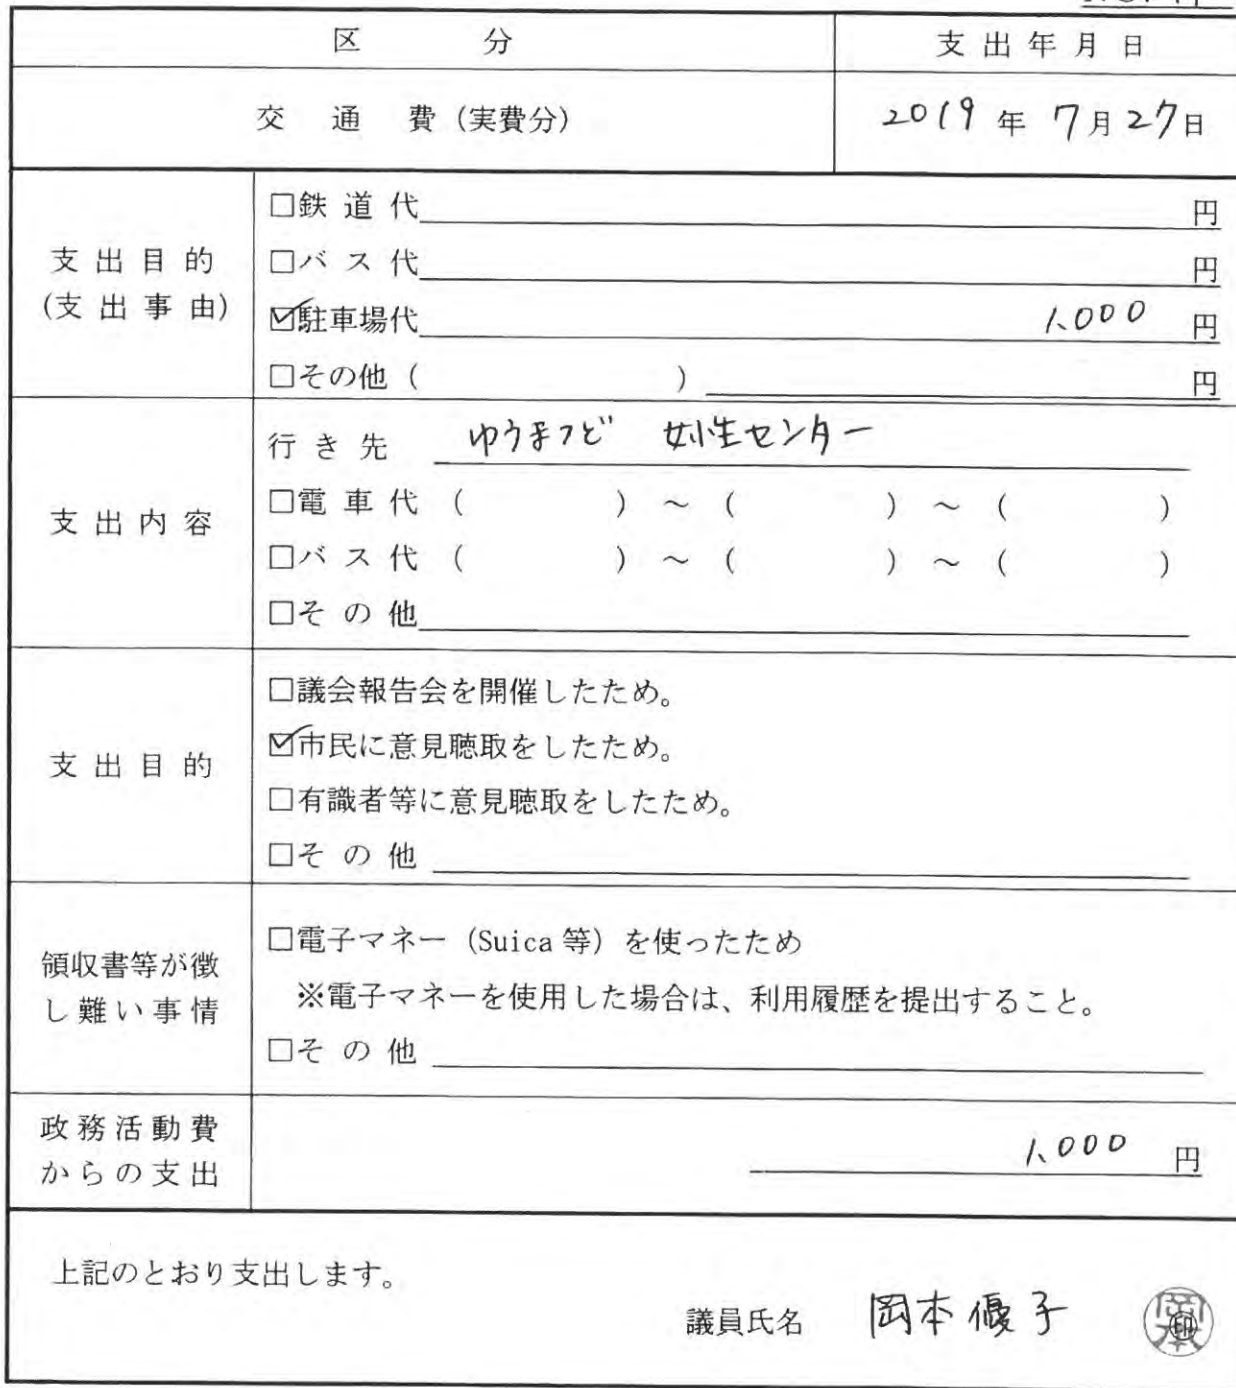 区 分
支出年月日
交 通 費(実費分)
2019年7月27日
支出目的
(支出事由)
□鉄道代 円
□バス代 円
☑駐車場代 1,000 円
□その他( ) 円
支出内容
行き先 ゆうまつど 女性センター
□電車代( )~( )~( )
□バス代( )~( )~( )
□その他
支出目的
□議会報告会を開催したため。
☑市民に意見聴取をしたため。
□有識者等に意見聴取をしたため。
□その他
領収書等が徴
し難い事情
□電子マネー(Suica等)を使ったため
※電子マネーを使用した場合は、利用履歴を提出すること。
□その他
政務活動費
からの支出
1,000 円
上記のとおり支出します。
議員氏名 岡本優子 岡本 ㊞